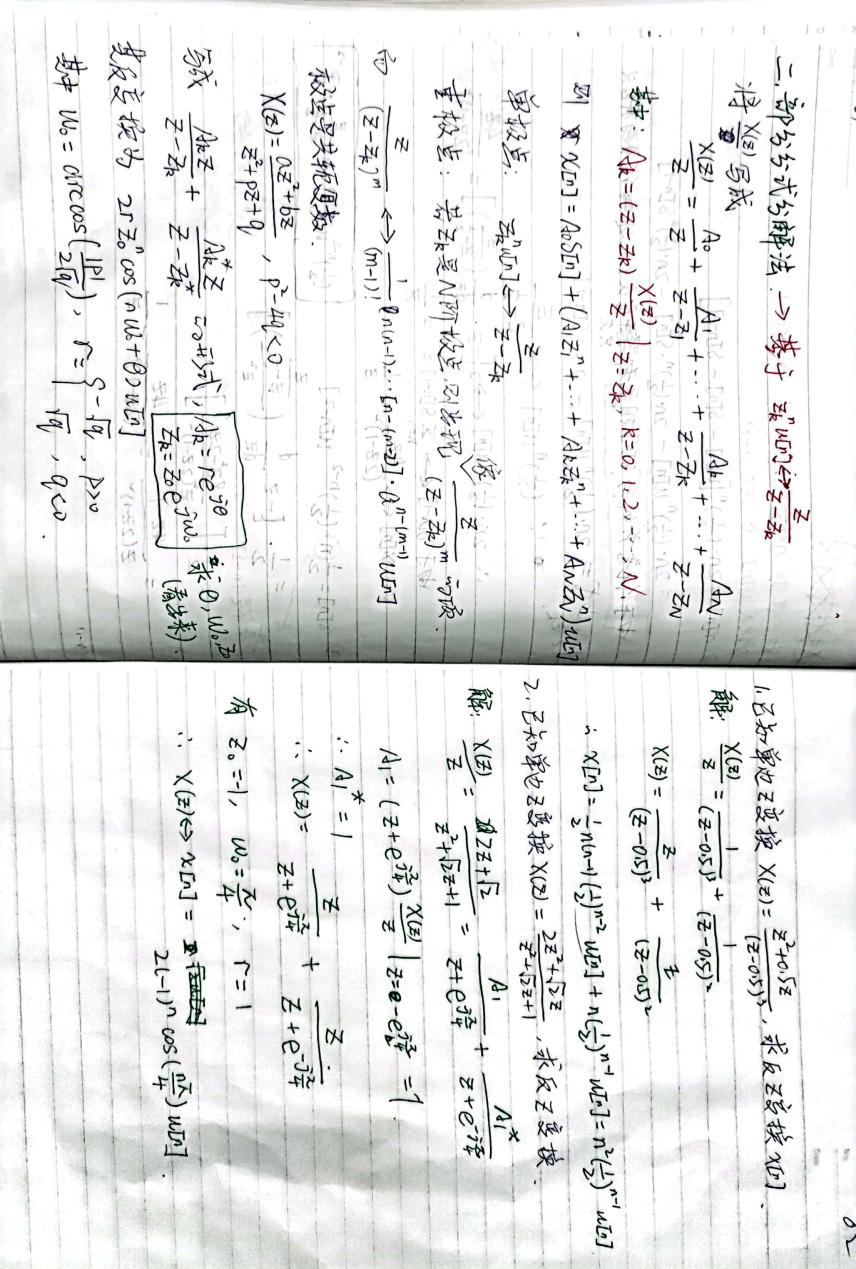 一. 部分分式分解法 → 基于 z_k^n u[n] ↔ z/(z-z_k)
将 X(z)/z 写成
X(z)/z = A_0/z + A_1/(z-z_1) + ... + A_k/(z-z_k) + ... + A_N/(z-z_N)
其中: A_k = (z-z_k) X(z)/z | z=z_k, k=0,1,2,...,N.
则 x[n] = A_0 δ[n] + (A_1 z_1^n + ... + A_k z_k^n + ... + A_N z_N^n) u[n]
单极点: z_k^n u[n] ↔ z/(z-z_k)
重极点: 若z_k是N阶极点则出现 z/(z-z_k)^m 这项.
z/(z-z_k)^m ↔ 1/(m-1)! [n(n-1)...[n-(m-2)]·a^{n-(m-1)} u[n]
极点是共轭复数
X(z) = (az²+bz)/(z²+pz+q), p²-4q<0
写成 A_k z/(z-z_k) + A_k^* z/(z-z_k^*) 的形式, A_k = re^{jθ}
z_k = z_0 e^{jw_0} 求θ, w_0, z_0
其反变换为 2r z_0^n cos(nw_0+θ) u[n]
其中 w_0 = arccos(|p|/2√q), r = { -√q, p>0
√q, q<0.
1. 已知单边Z变换 X(z) = (z²+0.5z)/(z-0.5)³, 求反Z变换x[n].
解: X(z)/z = 1/(z-0.5)³ + 1/(z-0.5)²
X(z) = z/(z-0.5)³ + z/(z-0.5)²
∴ x[n] = ½n(n-1)(½)^{n-2} u[n] + n(½)^{n-1} u[n] = n²(½)^{n-1} u[n]
2. 已知单边Z变换 X(z) = (2z²+√2z)/(z²+√2z+1), 求反Z变换.
解: X(z)/z = (2z+√2)/(z²+√2z+1) = A_1/(z+e^{jπ/4}) + A_1^*/(z+e^{-jπ/4})
A_1 = (z+e^{jπ/4}) X(z)/z | z=-e^{jπ/4} = 1
∴ A_1^* = 1
∴ X(z) = z/(z+e^{jπ/4}) + z/(z+e^{-jπ/4})
有 z_0=-1, w_0=π/4, r=1
∴ X(z) ↔ x[n] =
2(-1)^n cos(nπ/4) u[n].